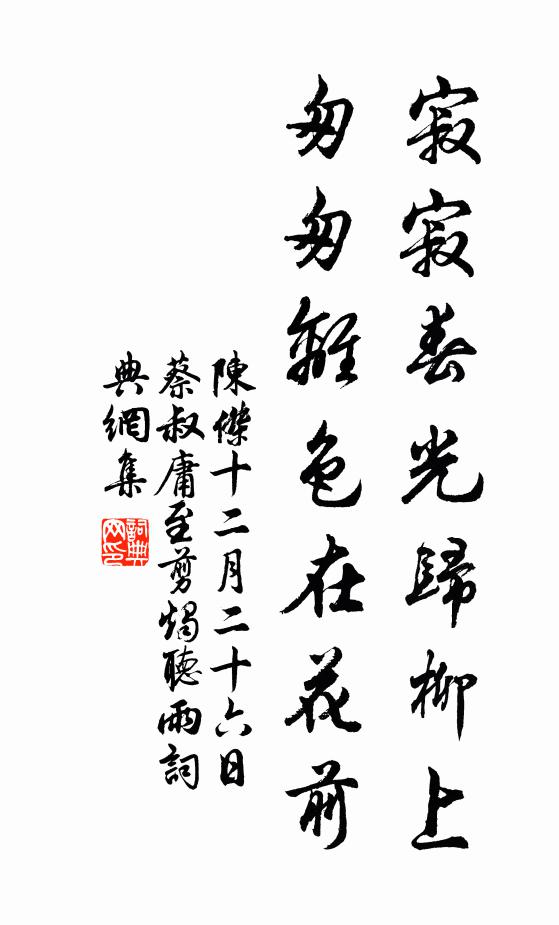 寂寂春光歸柳上
匆匆離色在花前
陳傑十二月二十六日
蔡叔庸至剪燭聽雨詞
典網集
詞典
网印